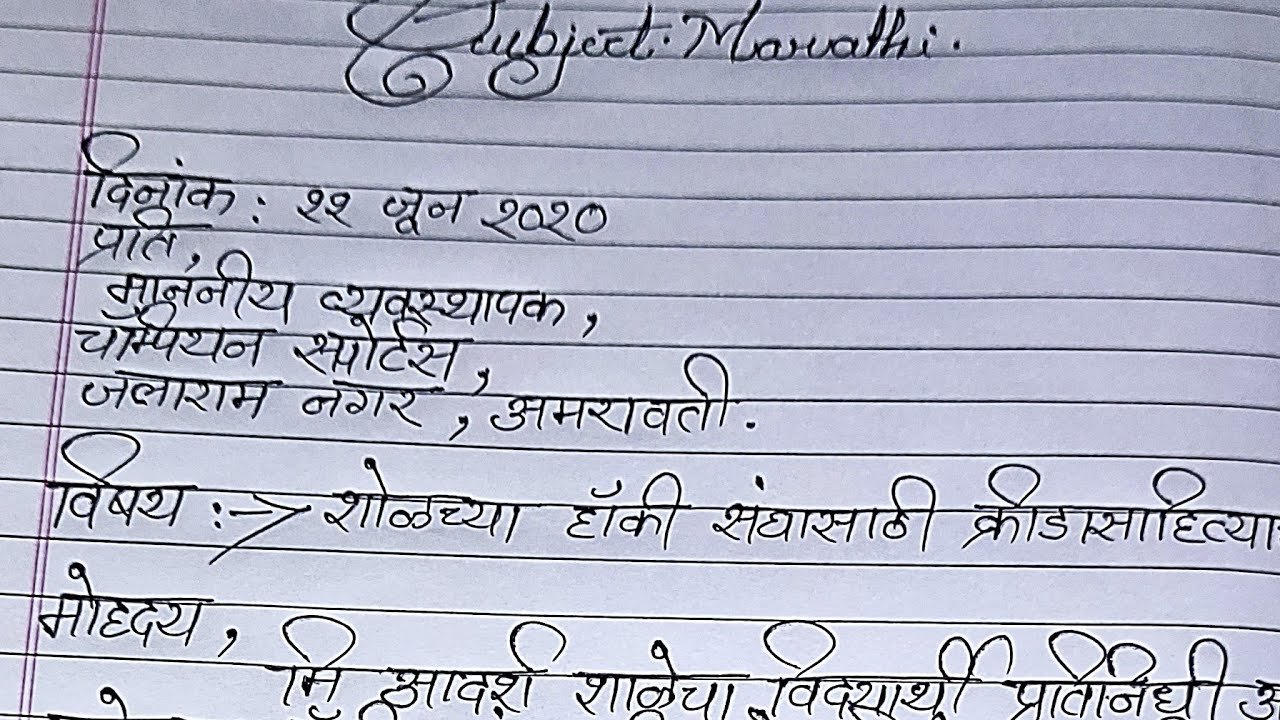 Subject: Marathi.
दिनांक: २२ जून २०२०
प्रति,
माननीय व्यवस्थापक,
चॅम्पियन स्पोर्टस,
जलाराम नगर, अमरावती.
विषय :-> शोळच्या हॉकी संघासाठी क्रीडासाहित्या
मोहदय,
मि आदर्श शाळेचा विदयार्थी प्रतिनिधी